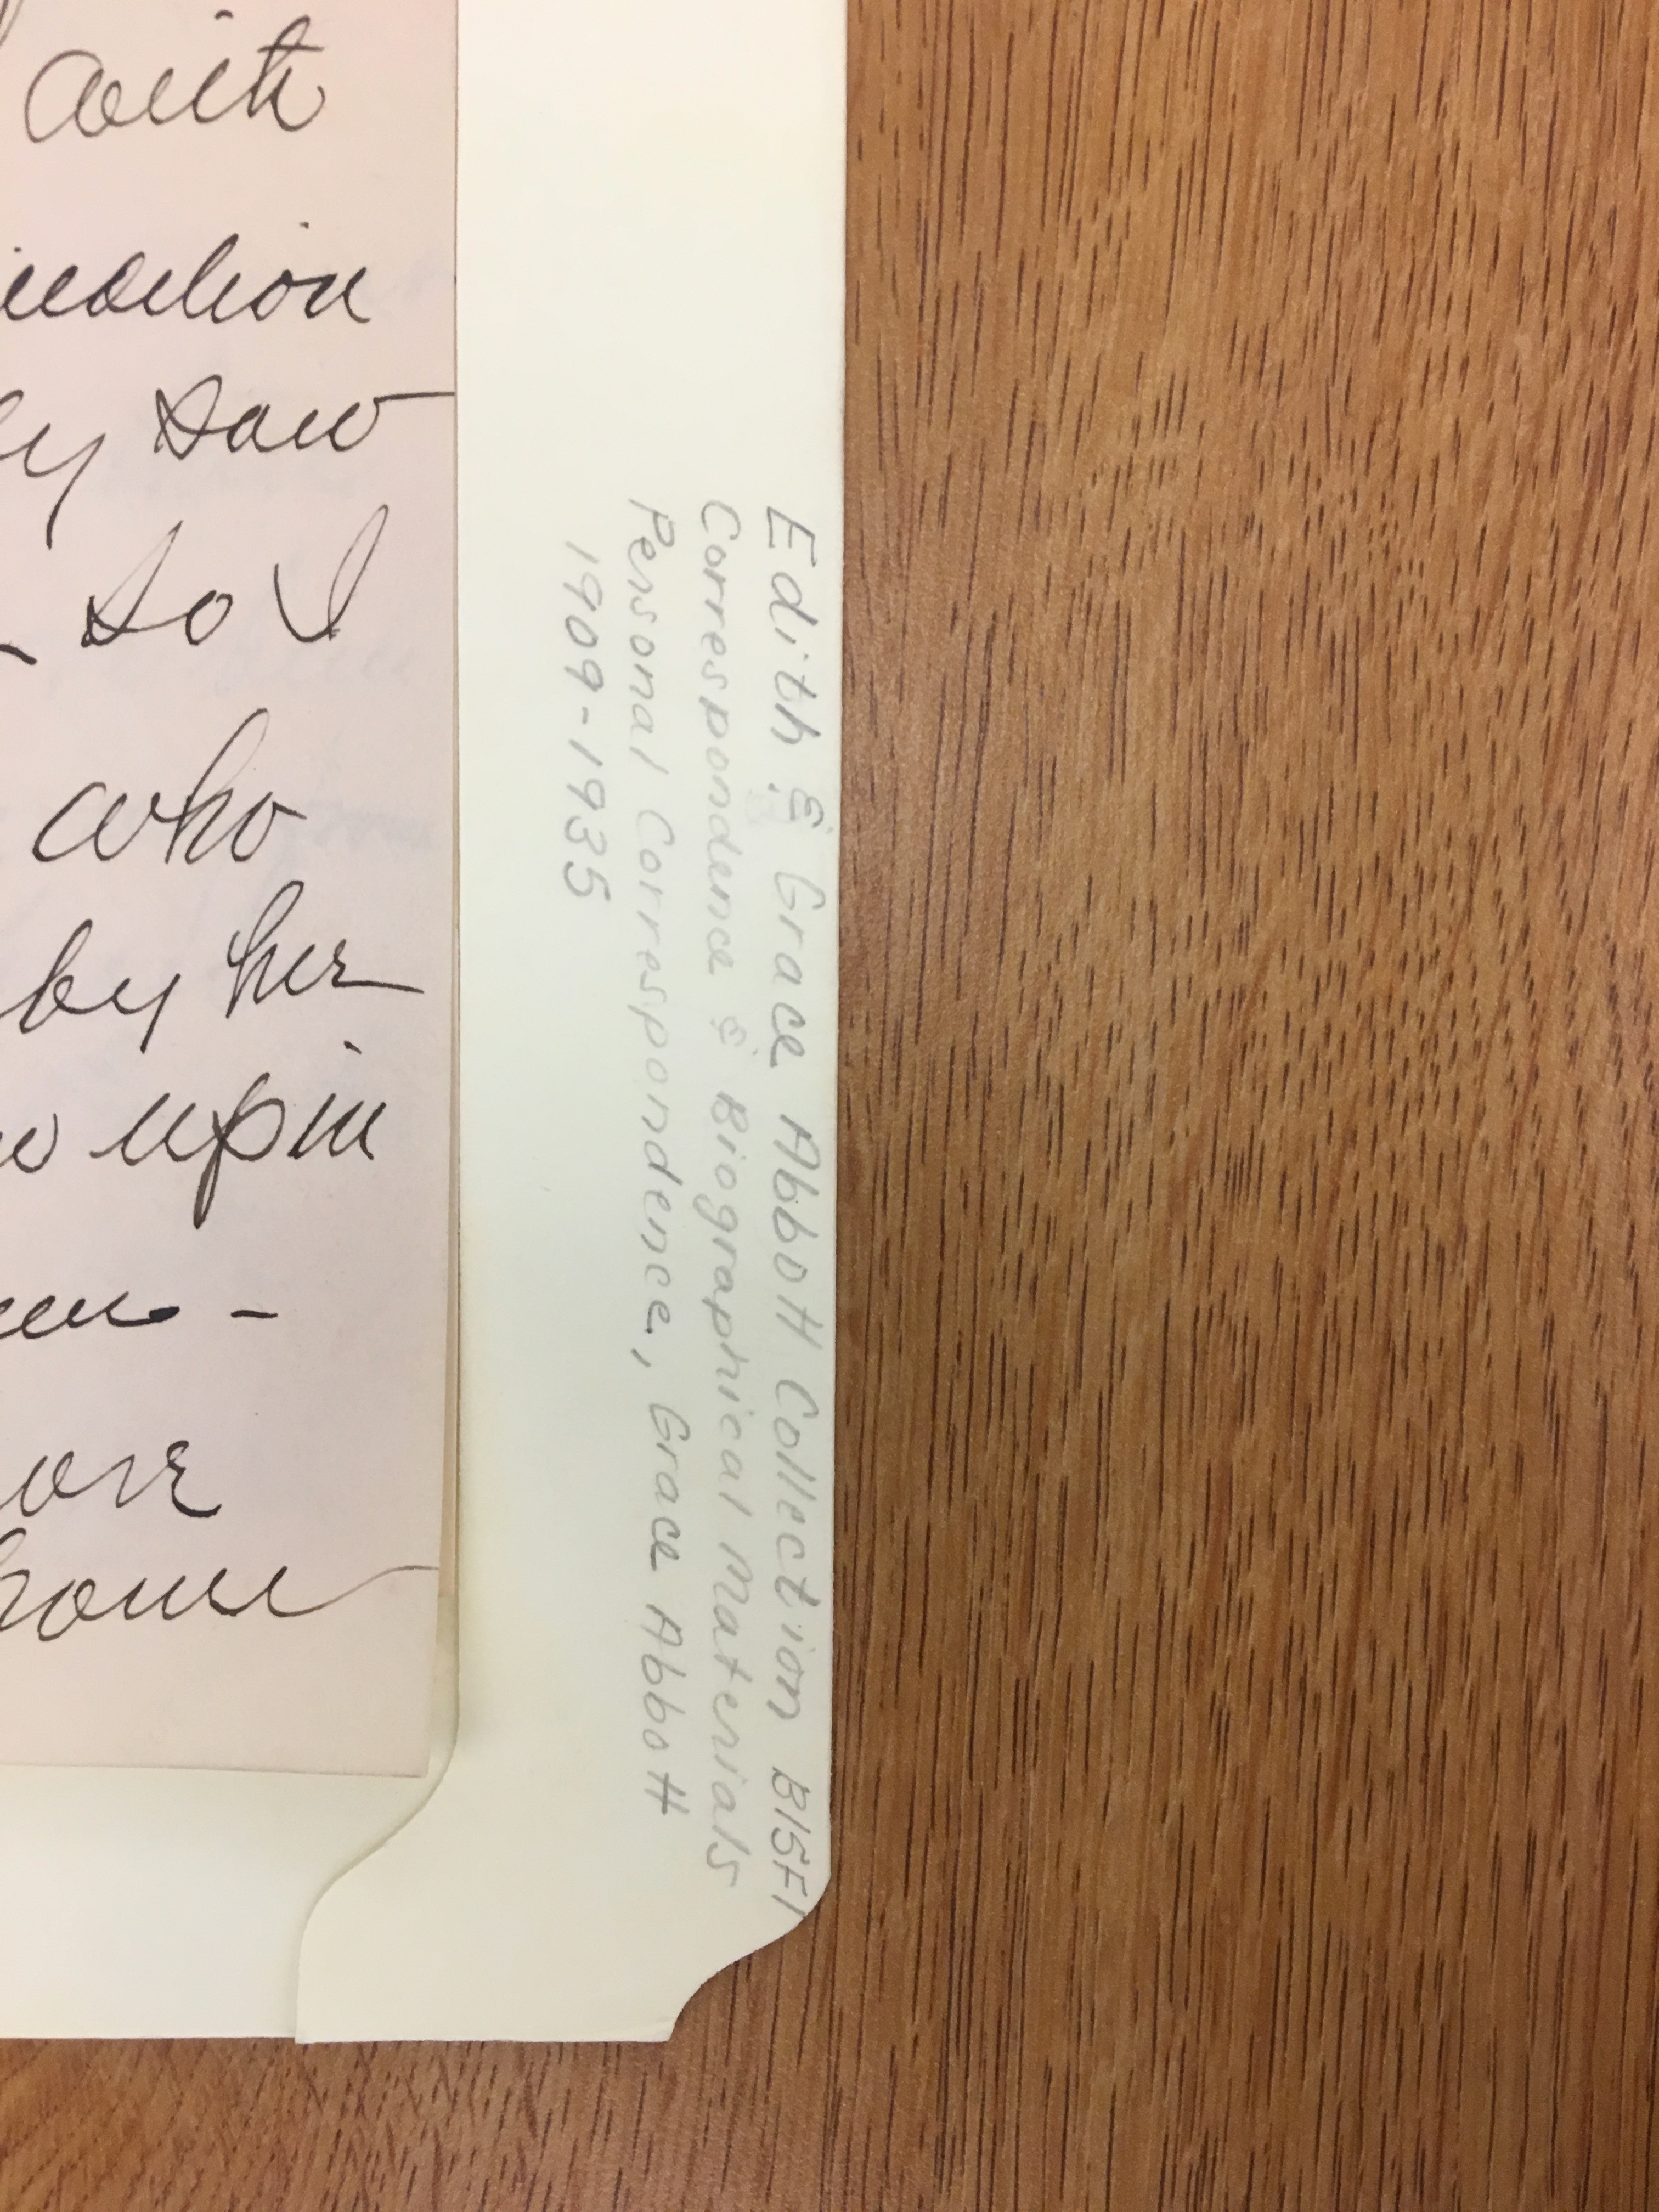 with
saw
so I
who
by her
up in
-
home
Edith & Grace Abbott Collection B15F1
Correspondence & Biographical Materials
Personal Correspondence, Grace Abbott
1909-1935